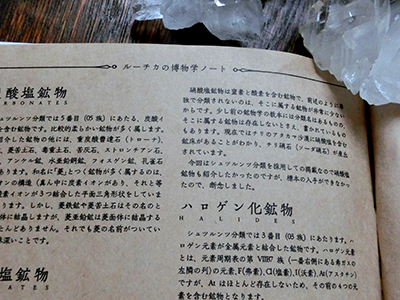 ルーチカの博物学ノート
酸塩鉱物
CARBONATES
シュツルンツ分類では5番目(05族)にあたる、炭酸イ
を含む鉱物です。比較的柔らかい鉱物が多く属します。
紹介した鉱物の他には、重炭酸曹達石(トロナ)、
、菱苦土石、毒重土石、苦灰石、ストロンチアン石、
、アンケル鉱、水亜鉛銅鉱、フォスゲン鉱、孔雀石
あります。和名に「菱」とつく鉱物が多く属するのは、
オンの構造(真ん中に炭素イオンがあり、それと等
素イオンが3つ結合した平角三角形をしていま
ります。しかし、菱鉄鉱や菱苦土石はその名のと
体に結晶しますが、菱亜鉛鉱は菱面体に結晶する
とんどありません。それでも菱の名前がついてい
味深いことです。
塩鉱物
硝酸塩鉱物は窒素と酸素を含む鉱物で、前述のように単
独で分類されないのは、そこに属する鉱物が非常に少ない
からです。少し前の鉱物学の教本には分類名はあるものの、
そこに属する鉱物は存在しないとさえ、書かれているもの
もあります。現在ではチリのアタカマ沙漠に硝酸塩を含む
鉱床があることがわかり、チリ硝石(ソーダ硝石)が産出
されています。
今回はシュツルンツ分類を採用しての掲載なので硝酸塩
鉱物も紹介したかったのですが、標本の入手ができなかっ
たので、断念しました。
ハロゲン化鉱物
HALIDES
シュツルンツ分類では3番目(03族)にあたります。ハ
ロゲン元素が金属元素と結合した鉱物です。ハロゲン元素
とは、元素周期表の第VIIB7族(一番右側にある希ガスの
左隣の列)の元素、F(弗素)、Cl(塩素)、I(沃素)、At(アスタチン)
ですが、Atはほとんど存在しないため、その前の4つの元
素を含む鉱物となります。